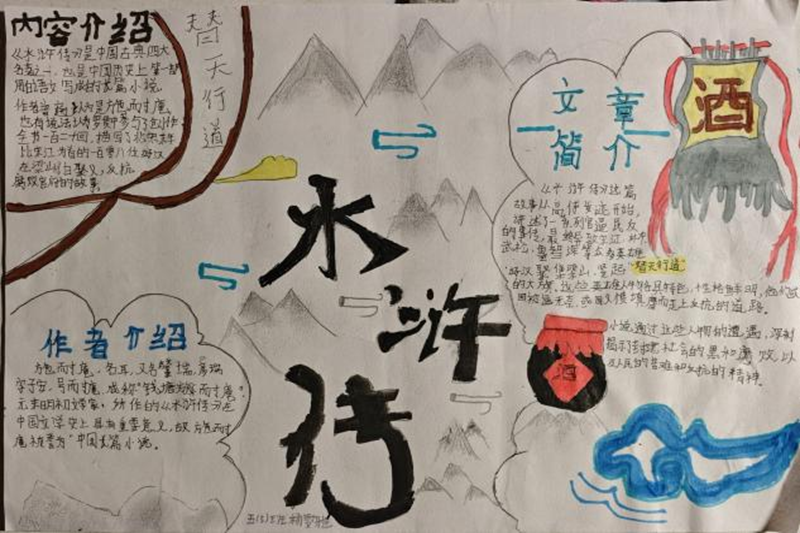 内容介绍
《水浒传》是中国古典四大
名著之一，也是中国历史上第一部
用白话文写成的长篇小说。
作者普遍认为是施耐庵，
也有说法认为罗贯中参与了创作
全书一百二十回，描写了北宋末年
以宋江为首的一百零八位好汉
在梁山泊聚义，反抗
腐败官府的故事
替天行道
水
浒
传
文章
简介
《水浒传》这篇
故事从高俅发迹开始，
讲述了一系列官逼民反
的事件，最终导致宋江
武松，鲁智深等众多英雄
好汉聚集梁山，竖起"替天行道"
的大旗，这些英雄人物各具特色，性格鲜明，他们或
因被逼无奈，或因义愤填膺而走上反抗的道路。
小说通过这些人物的遭遇，深刻
揭示了封建社会的黑暗腐败以
及人民的苦难和反抗的精神。
酒
酒
作者介绍
施耐庵，名耳，又名肇瑞，彦端
字子安，号耐庵，或称"钱塘施耐庵"
元末明初作家，所作的《水浒传》在
中国文学史上具有重要意义，故施耐
庵被誉为"中国长篇小说
五(5)班